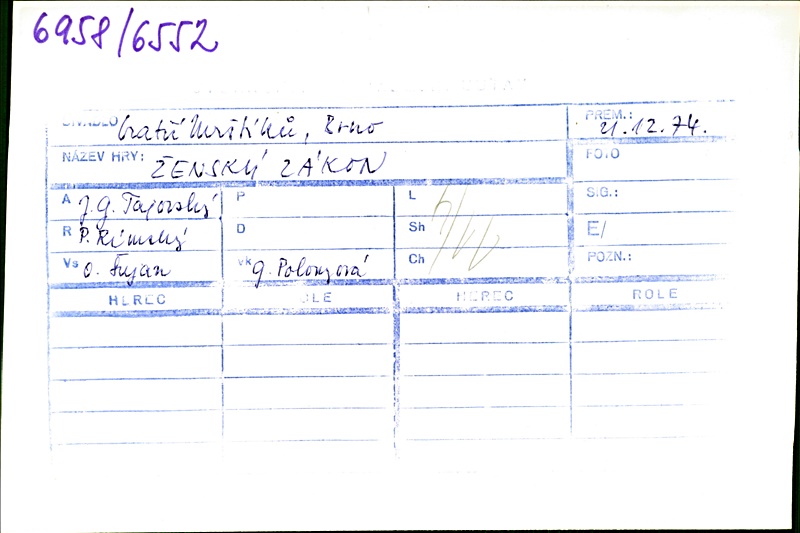 6958/6552
DIVADLO bratří Mrštíků, Brno PREM.: 21.12.74.
NÁZEV HRY: ŽENSKÝ ZÁKON FOTO
A J.G. Tajovský P L SIG.:
R P. Rímský D Sh E/
Vs O. Šujan vk J. Polonyová Ch POZN.:
HEREC ROLE HEREC ROLE